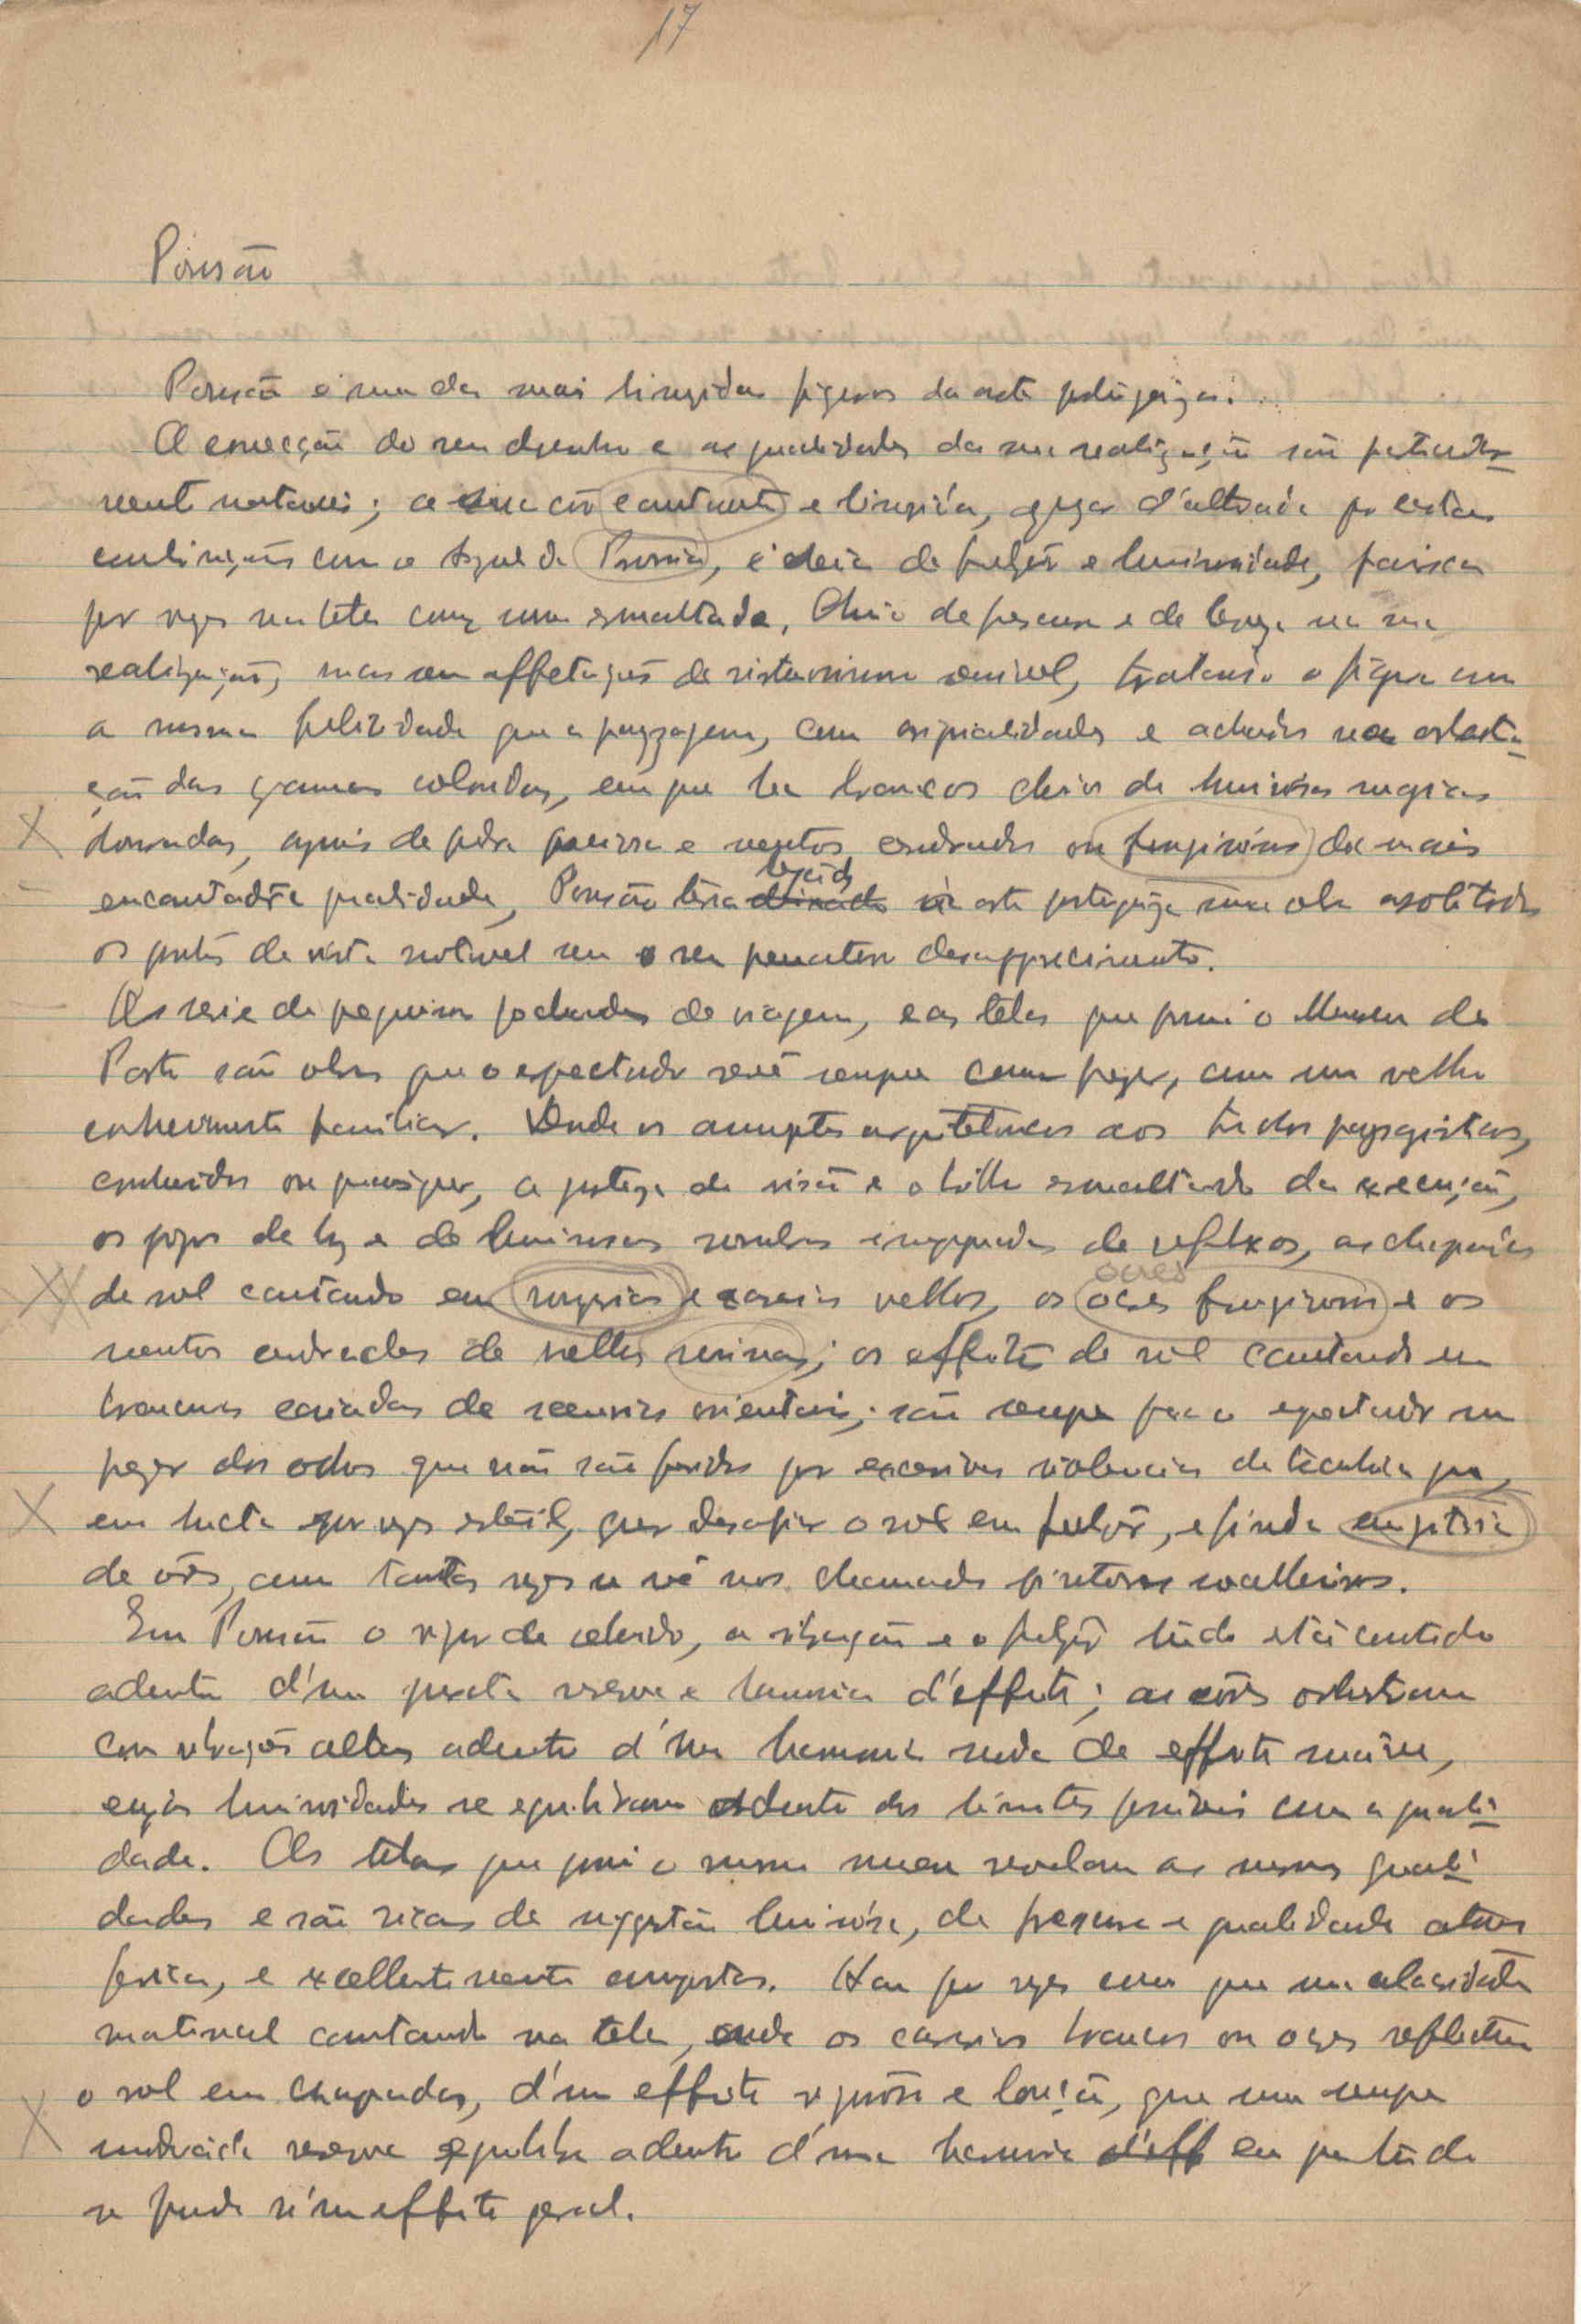 17
Pousão
Pousão é uma das mais limpidas figuras da arte portugueza.
A correcção do seu desenho e as qualidades da sua realização são particular-
mente notaveis; a sua côr cantante e limpida, apezar d'alterada por certas
combinações com o azul da Prussia, é cheia de fulgôr e luminosidade, parece
por vezes nas telas como uma esmaltada. Cheio de frescura e de leveza na sua
realização, mas sem affetações de virtuosismo sensivel, tratando a figura com
a mesma felicidade que a payzagem, com originalidades e achados na orchestra-
ção das gamas coloridas, em que ha brancos cheios de luminosas magias
douradas, azues de pedra preciosa e verdes ou fuginosos da mais
encantadôra qualidade, Pousão teria legado na arte portugueza uma obra a todos
os pontos de vista notavel sem o seu prematuro desapparecimento.
As serie de pequenas pochades de viagem, e as telas que possui o Museu do
Porto são obras que o espectador revê sempre com prazer, como um velho
conhecimento familiar. Desde os assumptos arquitetonicos aos trechos paysagisticos,
a justeza da visão e o brilho esmaltado da execução,
os jogos de luz e de luminosas sombras impregnadas de reflexos, as chapadas
de sol cantando em e casarios velhos, os ocres e os
de velhas ; os effeitos de sol cantando em
brancuras de orientais; são sempre para o espectador um
prazer dos olhos que não são feridos por excessivas violencias de technica que,
em lucta por vezes esteril, quer desafiar o sol em fulgôr, e finda
de côr, como tantas vezes se vê nos chamados pintores soalheiros.
Em Pousão o vigor do colorido, a vibração e o fulgôr tudo está contido
adentro d'uma justa reserva e harmonia d'effeito; as côres orchestram
com vibrações altas adentro d'uma harmonia de effeito
cujas luminosidades se equilibram adentro dos limites possiveis com a quali-
dade. As telas que possui o mesmo museu revelam as mesmas quali-
dades e são ricas de suggestão luminosa, de frescura e qualidade atmos
ferica, e excellentemente compostas. Ha por vezes como que uma alacridade
matinal cantando na tela, onde os casarios brancos ou ocres reflectem
o sol em chapadas, d'um effeito vigoroso e loução, que uma sempre
reserva equilibra adentro d'uma harmonia em que tudo
se funde n'um effeito geral.